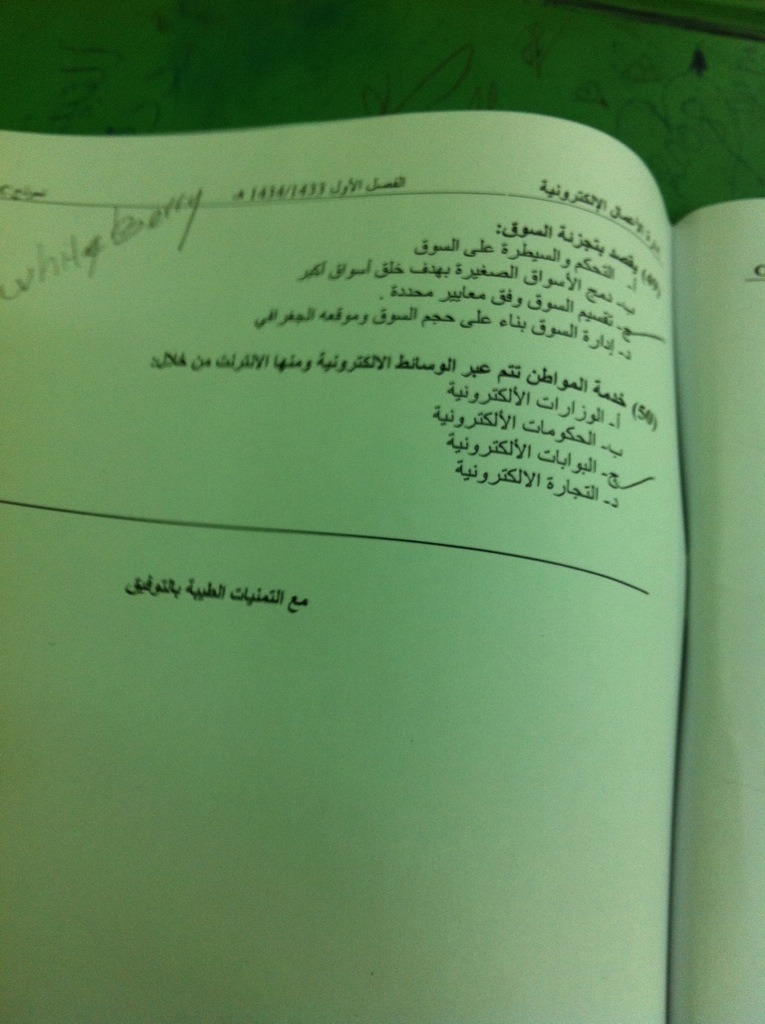 إدارة الأعمال الإلكترونية الفصل الأول 1434/1433 هـ نموذج C
White Berry
(49) يقصد بتجزئة السوق:
أ- التحكم والسيطرة على السوق
ب- دمج الأسواق الصغيرة بهدف خلق أسواق أكبر
ج- تقسيم السوق وفق معايير محددة .
د- إدارة السوق بناء على حجم السوق وموقعه الجغرافي
(50) خدمة المواطن تتم عبر الوسائط الالكترونية ومنها الانترنت من خلال:
أ- الوزارات الألكترونية
ب- الحكومات الألكترونية
ج- البوابات الألكترونية
د- التجارة الالكترونية
مع التمنيات الطيبة بالتوفيق